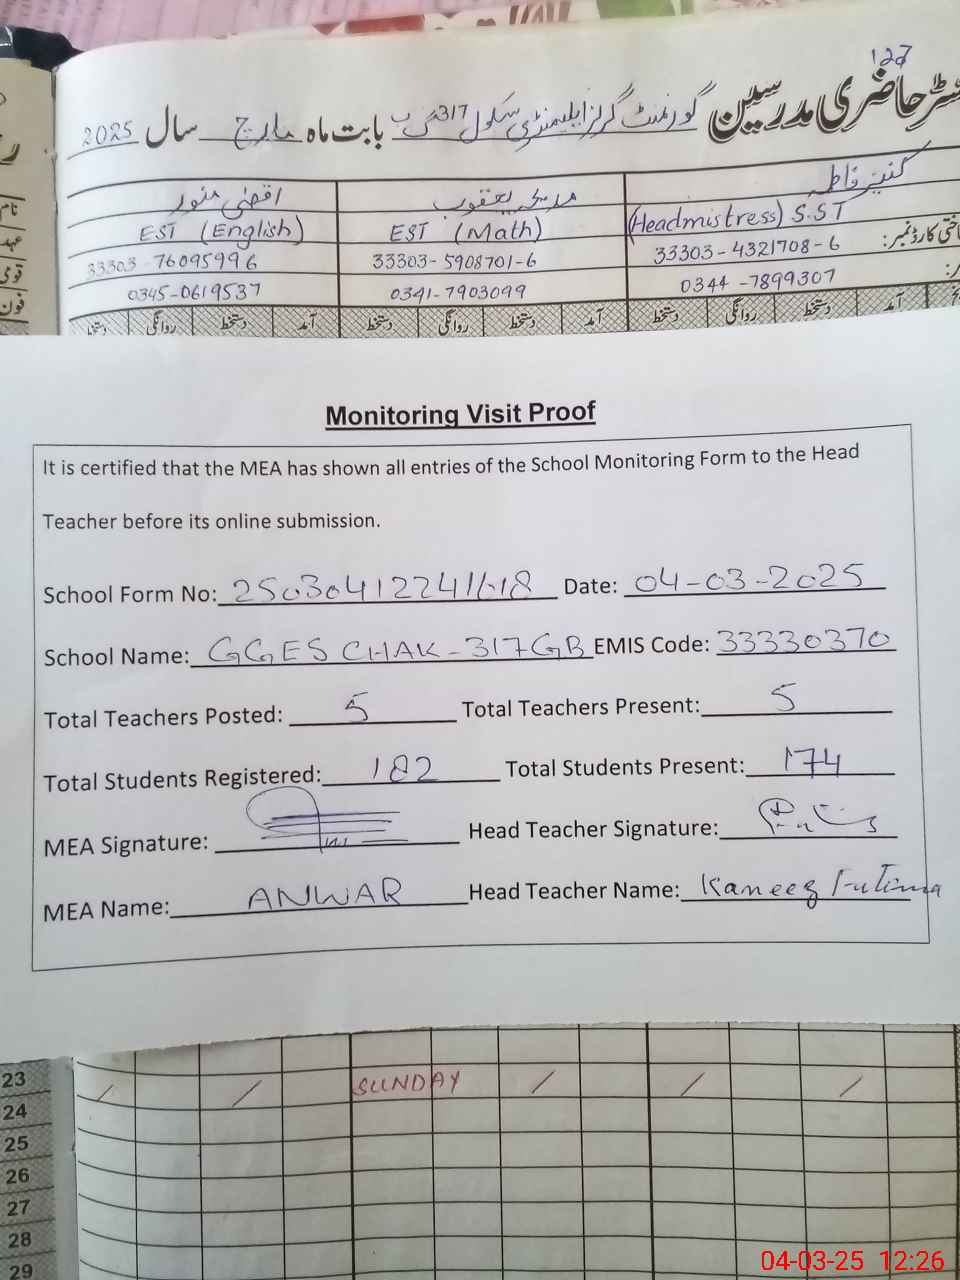 127
رجسٹر حاضری مدرسین گورنمنٹ گرلز ایلیمنٹری سکول 317 گ ب بابت ماہ مارچ سال 2025
کنیز فاطمہ مدیحہ یعقوب اقصٰی منور
نام
(Headmistress) S.ST EST (Math) EST (English)
عہد
شناختی کارڈ نمبر: 33303-4321708-6 33303-5908701-6 33303-76095996
قومی
0344-7899307 0341-7903099 0345-0619537
فون
آمد دستخط روانگی دستخط آمد دستخط روانگی دستخط آمد دستخط روانگی دستخط
Monitoring Visit Proof
It is certified that the MEA has shown all entries of the School Monitoring Form to the Head
Teacher before its online submission.
School Form No: Date: 04-03-2025
School Name: GGES CHAK-317GB EMIS Code: 33330370
Total Teachers Posted: 5 Total Teachers Present: 5
Total Students Registered: 182 Total Students Present: 174
MEA Signature: Head Teacher Signature:
MEA Name: ANWAR Head Teacher Name: Kaneez Fatima
23 SUNDAY
24
25
26
27
28
29
04-03-25 12:26